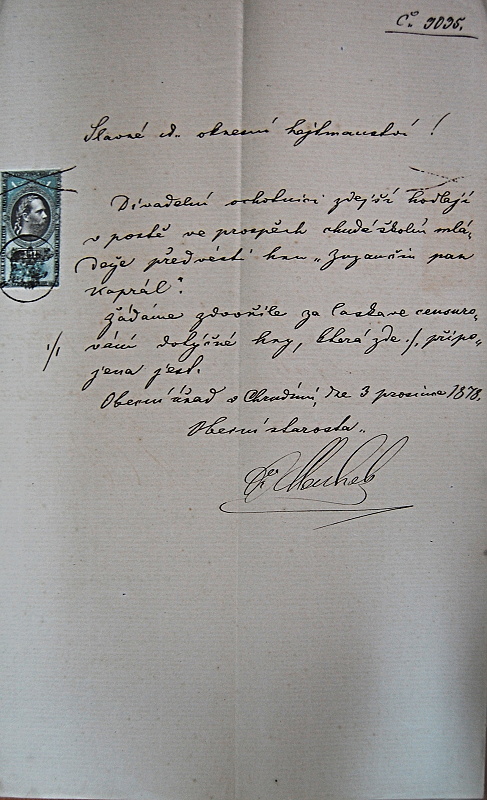 Čís. 3035.
Slavné c. k. okresní hejtmanství!
Divadelní ochotníci zdejší hodlají
v postě ve prospěch chudé školní mlá-
deže předvésti hru „Zuzančin pan
Kaprál".
Žádáme zdvořile za laskavé censuro-
vání dotyčné hry, která zde ./. připo-
1/1
jena jest.
Obecní úřad v Chrudimi, dne 3 prosince 1878.
Obecní starosta.
Dr